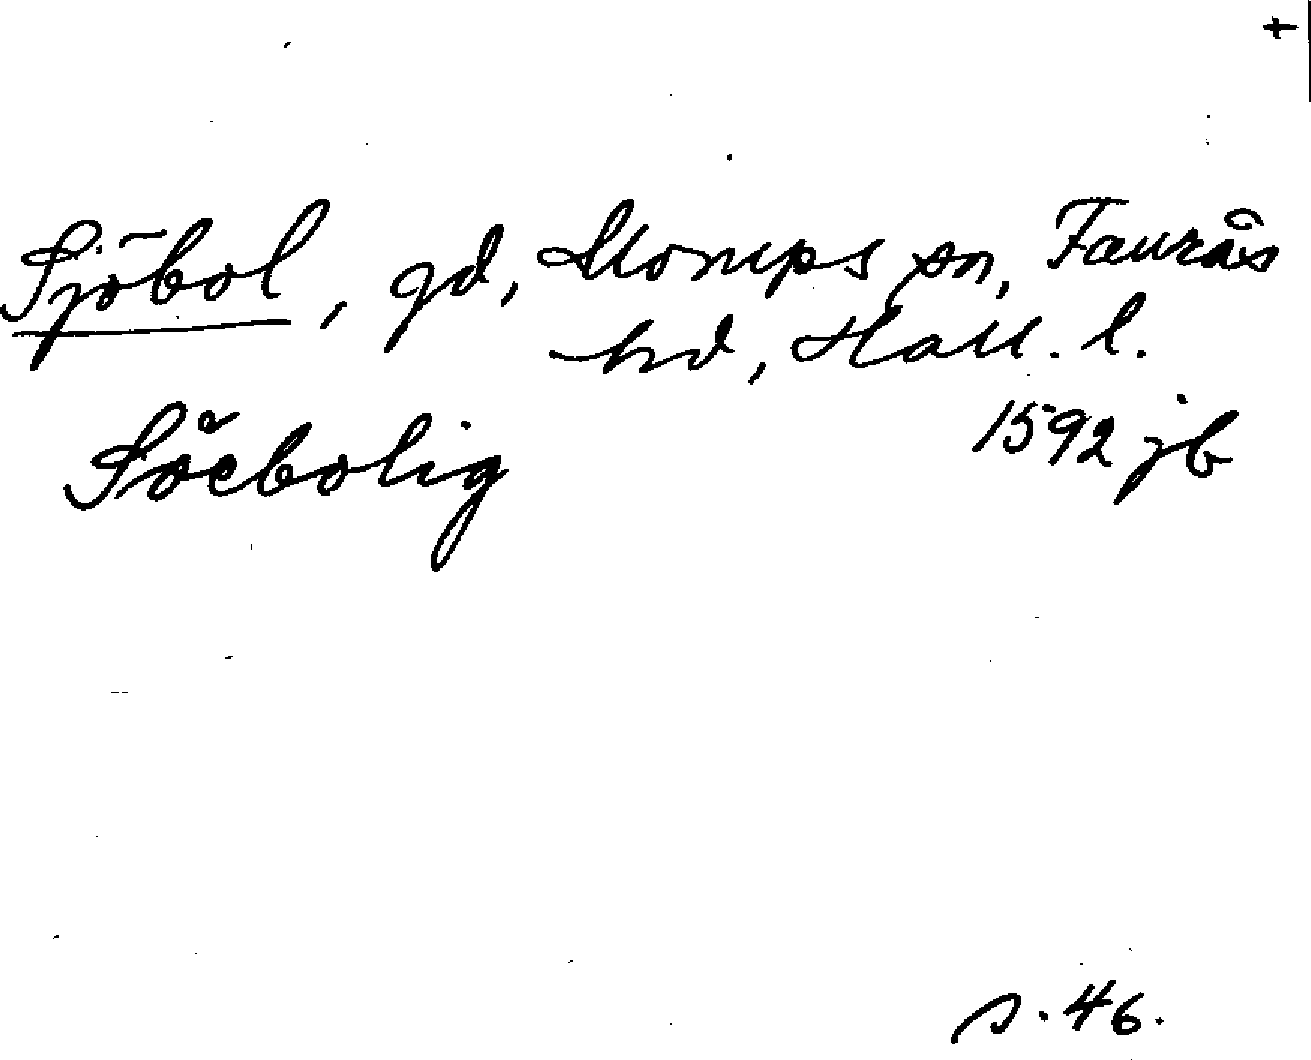 +
Sjöbol, gd, Morups sn, Faurås
hd, Hall. l.
Söebolig 1592 jb
s. 46.